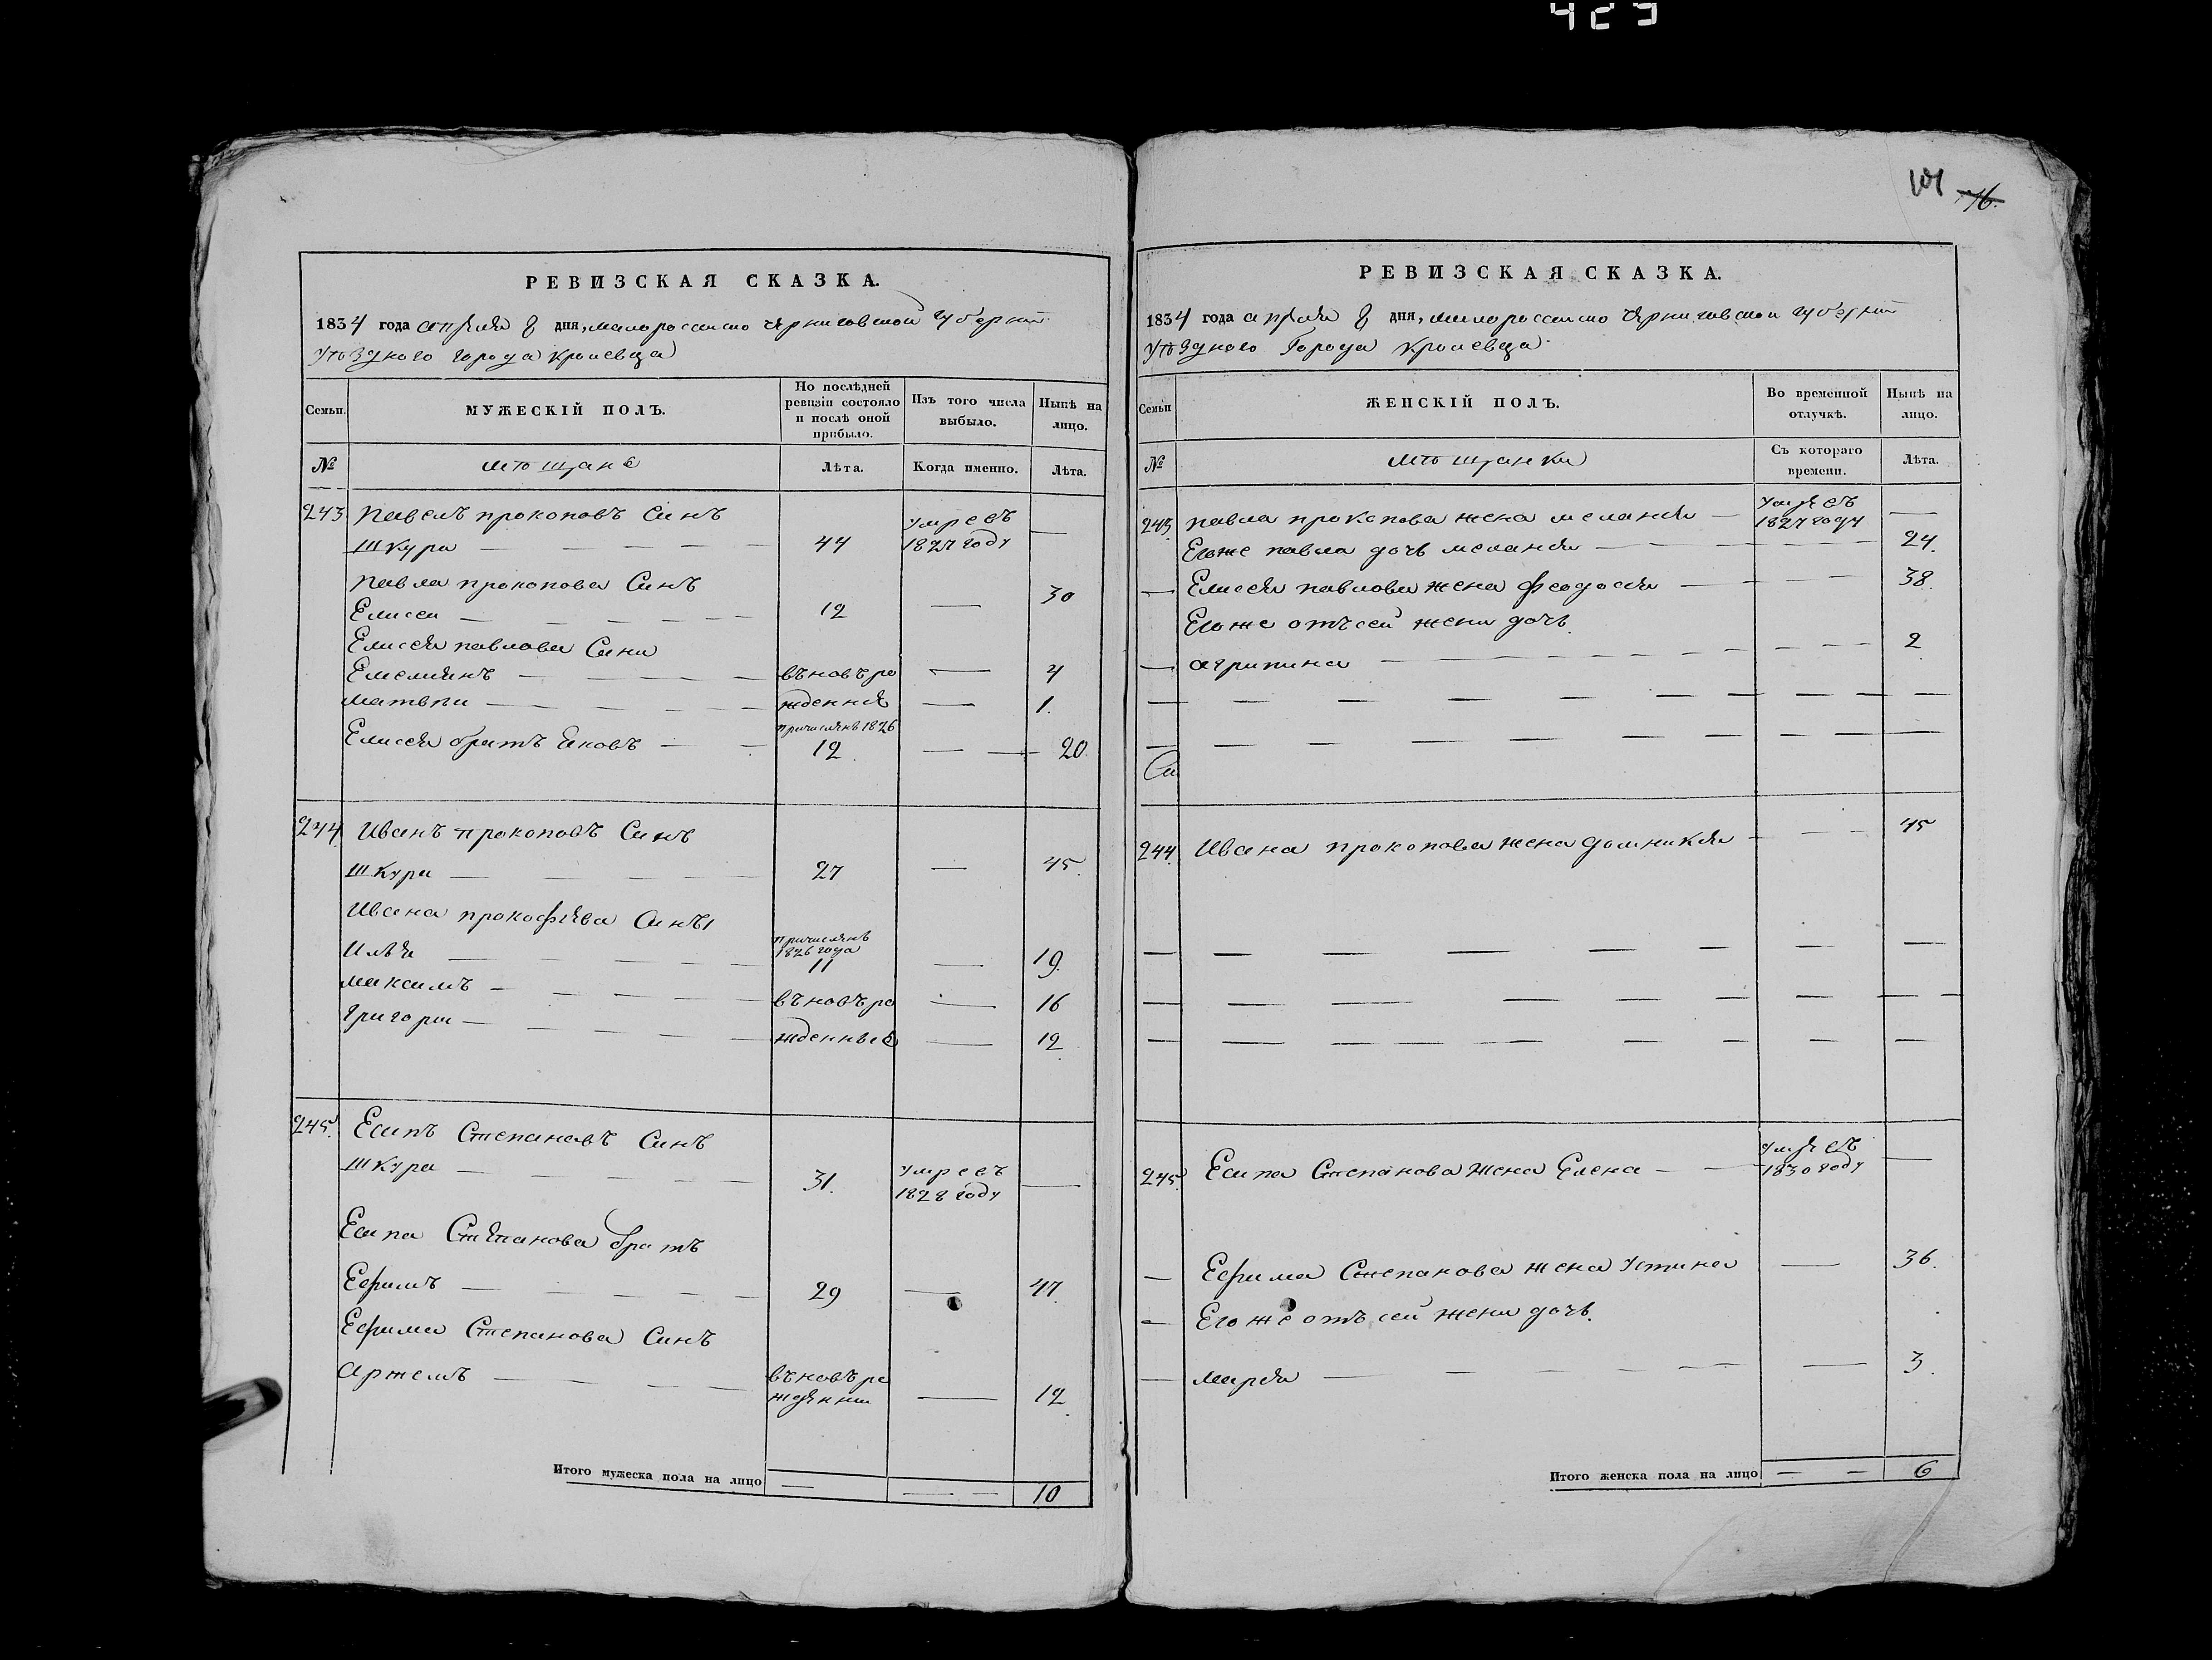 423
101 76.
РЕВИЗСКАЯ СКАЗКА.
1834 года апреля 8 дня, малороссийско черниговской губернии
уѣздного города кролевца
Семьи. МУЖЕСКІЙ ПОЛЪ. По послѣдней ревизіи состояло и послѣ оной прибыло. Изъ того числа выбыло. Нынѣ на лицо.
№ мѣщане Лѣта. Когда именно. Лѣта.
243 Павелъ прокоповъ Синъ
Шкура — 44 умреъ 1827 году —
Павла прокопова Синъ
Елисеи — 12 — 30
Елисея павлова Сини
Емелиянъ — въновъро — 4
матвеи — жденния — 1.
Елисея братъ Яковъ — причислянъ 1826 12. — 20.
244 Иванъ прокоповъ Синъ
Шкура — 27 — 45.
Ивана прокофиева Синъ
Илья — причислянъ 1826 года 11 — 19.
максимъ — въновъро — 16
григории — жденние — 12
245. Есипъ Степановъ Синъ
Шкура — 31. умреъ 1828 году —
Есипа Степанова братъ
Ефимъ — 29 — 47.
Ефима Степанова Синъ
Артемъ — въновъро ждянии — 12.
Итого мужеска пола на лицо — — — 10
РЕВИЗСКАЯ СКАЗКА.
1834 года апреля 8 дня, малороссийско черниговской губернии
уѣздного Города кролевца
Семьи ЖЕНСКІЙ ПОЛЪ. Во временной отлучкѣ. Нынѣ на лицо.
№ мѣщанки Съ котораго времени. Лѣта.
243. павла прокопова жена мелания — 1827 году —
Егоже павла дочь мелания — 24.
— Елисея павлова жена феодосия — 38.
Егоже отъ сей жени дочь.
— агрипина — 2
Си
244. Ивана прокопова жена домникия — 45
245. Есипа Степанова жена Елена — 1830 году —
— Ефима Степанова жена Устина — 36.
— Егоже отъ сей жени дочь.
— мария — 3.
Итого женска пола на лицо — — 6